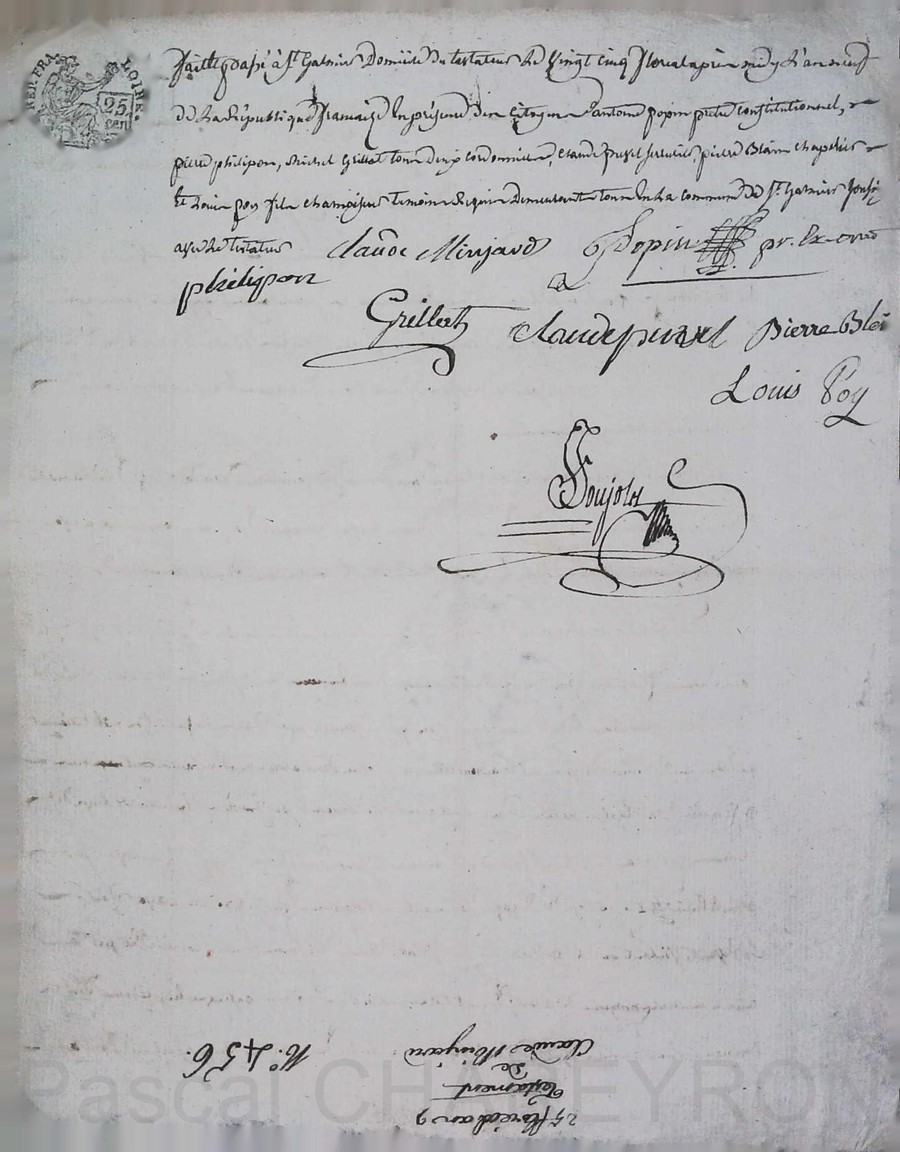 REP. FRA. LOIRE.
25 cen
fait & passé à St Galmier Domicile du testateur Le vingt cinq floreal après midy L'an neuf
de La République française En présence des Citoyens antoine popin pretre Constitutionnel,
pierre philipon, michel Grillet tous deux cordonniers, Claude pupel serrurier, pierre Blein chapelier
Et Louis poy fils chamoiseur temoins requis demeurants tous En La commune de St Galmier
avec Le testateur
Claude Minjard
Popin pr.
philigon
Grillet
Claude pupel
Pierre Blei
Louis Poy
Soujols
25 floreal an 9
Testament
De
Claude Minjard
No. 456.
Pascal CHAPEYRON